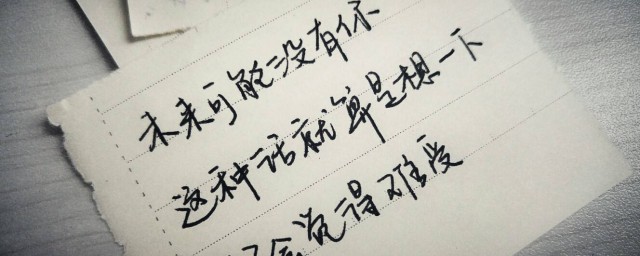 未来可能没有你
这种话就算是想一下
会觉得难受